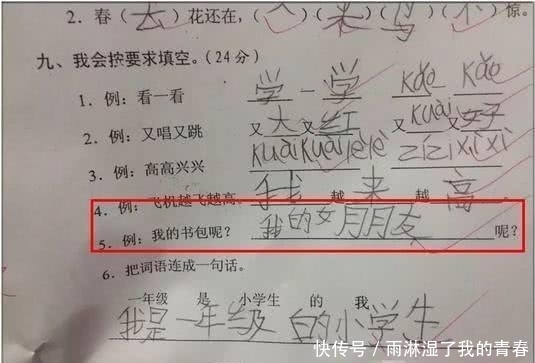 2. 春(去)花还在,(人)(来)(鸟)(不)惊。
九、我会按要求填空。(24分)
1. 例:看一看 学一学 kǎo kǎo
2. 例:又唱又跳 又大又红 又kuài又好
3. 例:高高兴兴 kuàikuàilèlè zǐzǐxìxì
4. 例:飞机越飞越高。 我越来越高。
5. 例:我的书包呢? 我的女月月友呢?
6. 把词语连成一句话。
一年级 是 小学生 的 我
我是一年级白的小学生
快传号/雨淋湿了我的青春